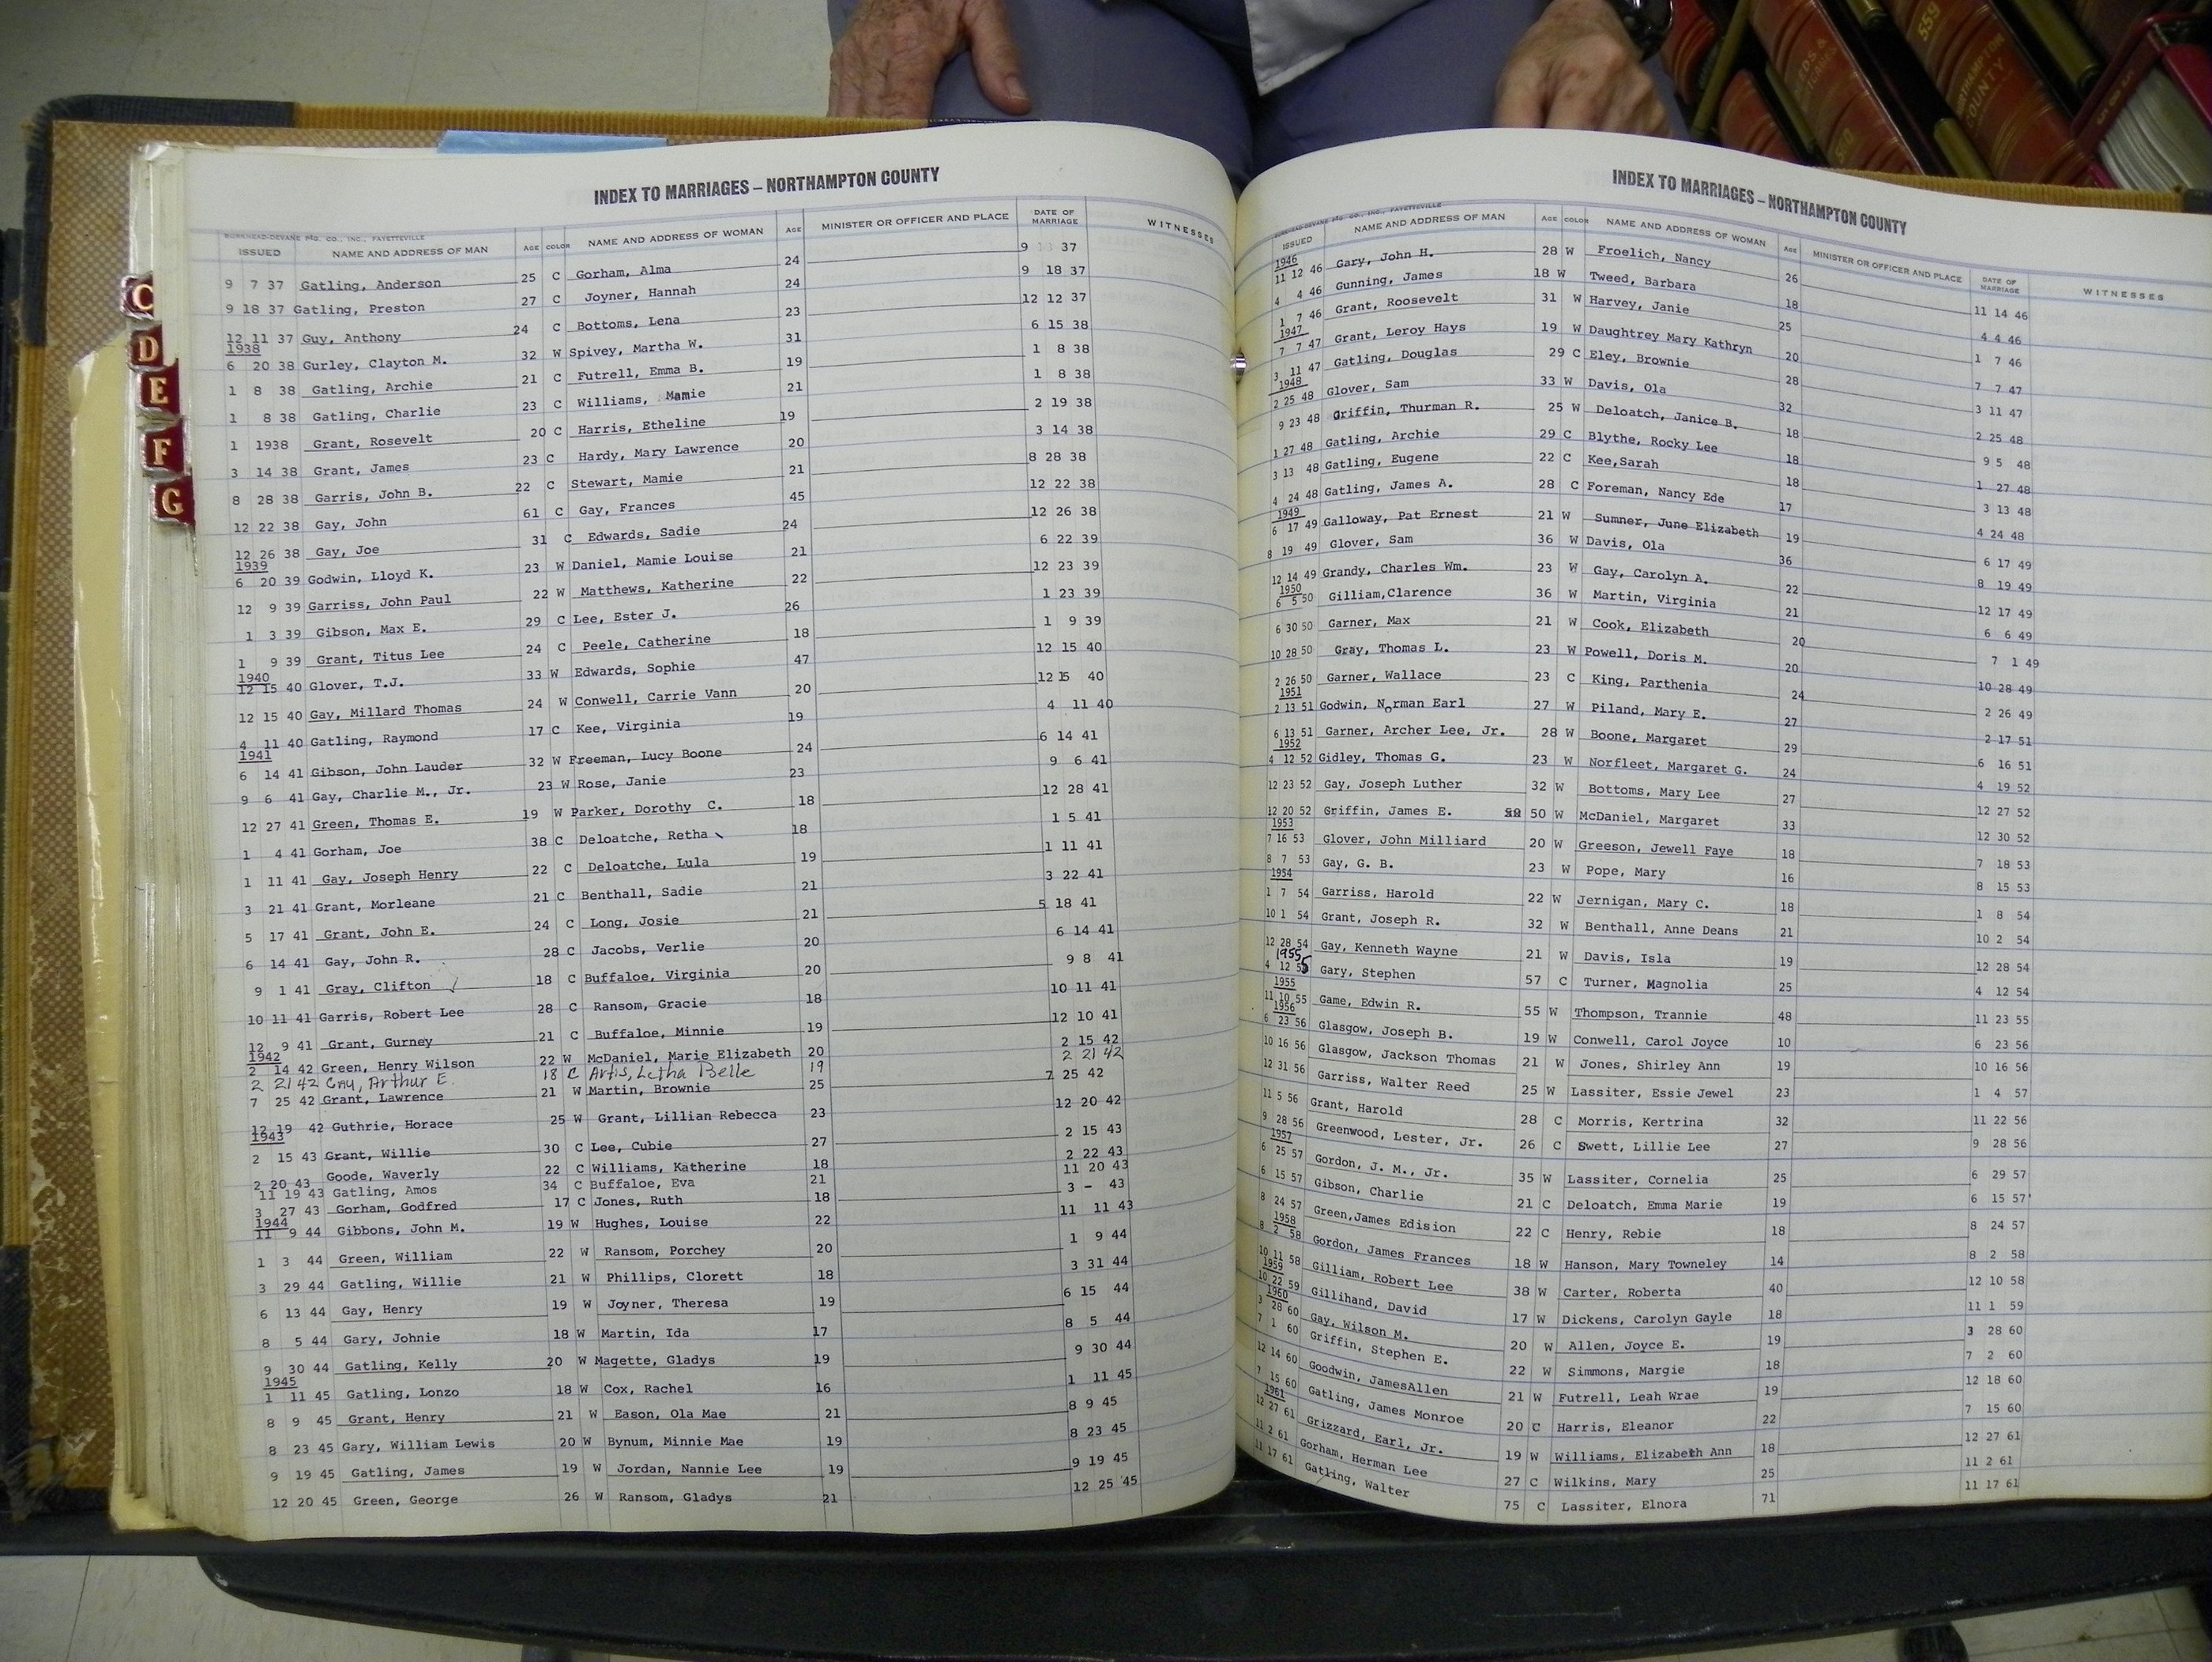 INDEX TO MARRIAGES – NORTHAMPTON COUNTY
ISSUED NAME AND ADDRESS OF MAN AGE COLOR NAME AND ADDRESS OF WOMAN AGE MINISTER OR OFFICER AND PLACE DATE OF MARRIAGE WITNESSES
9 7 37 Gatling, Anderson 25 C Gorham, Alma 24 9 37
9 18 37 Gatling, Preston 27 C Joyner, Hannah 24 9 18 37
12 11 37 Guy, Anthony 24 C Bottoms, Lena 23 12 12 37
1938
6 20 38 Gurley, Clayton M. 32 W Spivey, Martha W. 31 6 15 38
1 8 38 Gatling, Archie 21 C Futrell, Emma B. 19 1 8 38
1 8 38 Gatling, Charlie 23 C Williams, Mamie 21 1 8 38
1 1938 Grant, Rosevelt 20 C Harris, Etheline 19 2 19 38
3 14 38 Grant, James 23 C Hardy, Mary Lawrence 20 3 14 38
8 28 38 Garris, John B. 22 C Stewart, Mamie 21 8 28 38
12 22 38 Gay, John 61 C Gay, Frances 45 12 22 38
12 26 38 Gay, Joe 31 C Edwards, Sadie 24 12 26 38
1939
6 20 39 Godwin, Lloyd K. 23 W Daniel, Mamie Louise 21 6 22 39
12 9 39 Garriss, John Paul 22 W Matthews, Katherine 22 12 23 39
1 3 39 Gibson, Max E. 29 C Lee, Ester J. 26 1 23 39
1 9 39 Grant, Titus Lee 24 C Peele, Catherine 18 1 9 39
1940
12 15 40 Glover, T.J. 33 W Edwards, Sophie 47 12 15 40
12 15 40 Gay, Millard Thomas 24 W Conwell, Carrie Vann 20 12 15 40
4 11 40 Gatling, Raymond 17 C Kee, Virginia 19 4 11 40
1941
6 14 41 Gibson, John Lauder 32 W Freeman, Lucy Boone 24 6 14 41
9 6 41 Gay, Charlie M., Jr. 23 W Rose, Janie 23 9 6 41
12 27 41 Green, Thomas E. 19 W Parker, Dorothy C. 18 12 28 41
1 4 41 Gorham, Joe 38 C Deloatche, Retha 18 1 5 41
1 11 41 Gay, Joseph Henry 22 C Deloatche, Lula 19 1 11 41
3 21 41 Grant, Morleane 21 C Benthall, Sadie 21 3 22 41
5 17 41 Grant, John E. 24 C Long, Josie 21 5 18 41
6 14 41 Gay, John R. 28 C Jacobs, Verlie 20 6 14 41
9 1 41 Gray, Clifton 18 C Buffaloe, Virginia 20 9 8 41
10 11 41 Garris, Robert Lee 28 C Ransom, Gracie 18 10 11 41
12 9 41 Grant, Gurney 21 C Buffaloe, Minnie 19 12 10 41
1942
2 14 42 Green, Henry Wilson 22 W McDaniel, Marie Elizabeth 20 2 15 42
2 21 42 Gay, Arthur E. 18 C Artis, Letha Belle 19 2 21 42
7 25 42 Grant, Lawrence 21 W Martin, Brownie 25 7 25 42
12 19 42 Guthrie, Horace 25 W Grant, Lillian Rebecca 23 12 20 42
1943
2 15 43 Grant, Willie 30 C Lee, Cubie 27 2 15 43
2 20 43 Goode, Waverly 22 C Williams, Katherine 18 2 22 43
11 19 43 Gatling, Amos 34 C Buffaloe, Eva 21 11 20 43
3 27 43 Gorham, Godfred 17 C Jones, Ruth 18 3 – 43
1944
11 9 44 Gibbons, John M. 19 W Hughes, Louise 22 11 11 43
1 3 44 Green, William 22 W Ransom, Porchey 20 1 9 44
3 29 44 Gatling, Willie 21 W Phillips, Clorett 18 3 31 44
6 13 44 Gay, Henry 19 W Joyner, Theresa 19 6 15 44
8 5 44 Gary, Johnie 18 W Martin, Ida 17 8 5 44
9 30 44 Gatling, Kelly 20 W Magette, Gladys 19 9 30 44
1945
1 11 45 Gatling, Lonzo 18 W Cox, Rachel 16 1 11 45
8 9 45 Grant, Henry 21 W Eason, Ola Mae 21 8 9 45
8 23 45 Gary, William Lewis 20 W Bynum, Minnie Mae 19 8 23 45
9 19 45 Gatling, James 19 W Jordan, Nannie Lee 19 9 19 45
12 20 45 Green, George 26 W Ransom, Gladys 21 12 25 45
INDEX TO MARRIAGES – NORTHAMPTON COUNTY
ISSUED NAME AND ADDRESS OF MAN AGE COLOR NAME AND ADDRESS OF WOMAN AGE MINISTER OR OFFICER AND PLACE DATE OF MARRIAGE WITNESSES
1946
11 12 46 Gary, John H. 28 W Froelich, Nancy 26 11 14 46
4 4 46 Gunning, James 18 W Tweed, Barbara 18 4 4 46
1 7 46 Grant, Roosevelt 31 W Harvey, Janie 25 1 7 46
1947
7 7 47 Grant, Leroy Hays 19 W Daughtrey Mary Kathryn 20 7 7 47
3 11 47 Gatling, Douglas 29 C Eley, Brownie 28 3 11 47
1948
2 25 48 Glover, Sam 33 W Davis, Ola 32 2 25 48
9 23 48 Griffin, Thurman R. 25 W Deloatch, Janice B. 18 9 5 48
1 27 48 Gatling, Archie 29 C Blythe, Rocky Lee 18 1 27 48
3 13 48 Gatling, Eugene 22 C Kee,Sarah 18 3 13 48
4 24 48 Gatling, James A. 28 C Foreman, Nancy Ede 17 4 24 48
1949
6 17 49 Galloway, Pat Ernest 21 W Sumner, June Elizabeth 19 6 17 49
8 19 49 Glover, Sam 36 W Davis, Ola 36 8 19 49
12 14 49 Grandy, Charles Wm. 23 W Gay, Carolyn A. 22 12 17 49
1950
6 5 50 Gilliam,Clarence 36 W Martin, Virginia 21 6 6 49
6 30 50 Garner, Max 21 W Cook, Elizabeth 20 7 1 49
10 28 50 Gray, Thomas L. 23 W Powell, Doris M. 20 10 28 49
2 26 50 Garner, Wallace 23 C King, Parthenia 24 2 26 49
1951
2 13 51 Godwin, Norman Earl 27 W Piland, Mary E. 27 2 17 51
6 13 51 Garner, Archer Lee, Jr. 28 W Boone, Margaret 29 6 16 51
1952
4 12 52 Gidley, Thomas G. 23 W Norfleet, Margaret G. 24 4 19 52
12 23 52 Gay, Joseph Luther 32 W Bottoms, Mary Lee 27 12 27 52
12 20 52 Griffin, James E. 50 W McDaniel, Margaret 33 12 30 52
1953
7 16 53 Glover, John Milliard 20 W Greeson, Jewell Faye 18 7 18 53
8 7 53 Gay, G. B. 23 W Pope, Mary 16 8 15 53
1954
1 7 54 Garriss, Harold 22 W Jernigan, Mary C. 18 1 8 54
10 1 54 Grant, Joseph R. 32 W Benthall, Anne Deans 21 10 2 54
12 28 54 Gay, Kenneth Wayne 21 W Davis, Isla 19 12 28 54
1955
4 12 55 Gary, Stephen 57 C Turner, Magnolia 25 4 12 54
1955
11 10 55 Game, Edwin R. 55 W Thompson, Trannie 48 11 23 55
1956
6 23 56 Glasgow, Joseph B. 19 W Conwell, Carol Joyce 10 6 23 56
10 16 56 Glasgow, Jackson Thomas 21 W Jones, Shirley Ann 19 10 16 56
12 31 56 Garriss, Walter Reed 25 W Lassiter, Essie Jewel 23 1 4 57
11 5 56 Grant, Harold 28 C Morris, Kertrina 32 11 22 56
9 28 56 Greenwood, Lester, Jr. 26 C Swett, Lillie Lee 27 9 28 56
1957
6 25 57 Gordon, J. M., Jr. 35 W Lassiter, Cornelia 25 6 29 57
6 15 57 Gibson, Charlie 21 C Deloatch, Emma Marie 19 6 15 57
8 24 57 Green,James Edision 22 C Henry, Rebie 18 8 24 57
1958
8 2 58 Gordon, James Frances 18 W Hanson, Mary Towneley 14 8 2 58
10 11 58 Gilliam, Robert Lee 38 W Carter, Roberta 40 12 10 58
1959
10 22 59 Gillihand, David 17 W Dickens, Carolyn Gayle 18 11 1 59
1960
3 28 60 Gay, Wilson M. 20 W Allen, Joyce E. 19 3 28 60
7 1 60 Griffin, Stephen E. 22 W Simmons, Margie 18 7 2 60
12 14 60 Goodwin, JamesAllen 21 W Futrell, Leah Wrae 19 12 18 60
7 15 60 Gatling, James Monroe 20 C Harris, Eleanor 22 7 15 60
1961
12 27 61 Grizzard, Earl, Jr. 19 W Williams, Elizabeth Ann 18 12 27 61
11 2 61 Gorham, Herman Lee 27 C Wilkins, Mary 25 11 2 61
11 17 61 Gatling, Walter 75 C Lassiter, Elnora 71 11 17 61
C
D
E
F
G
NORTHAMPTON COUNTY
559